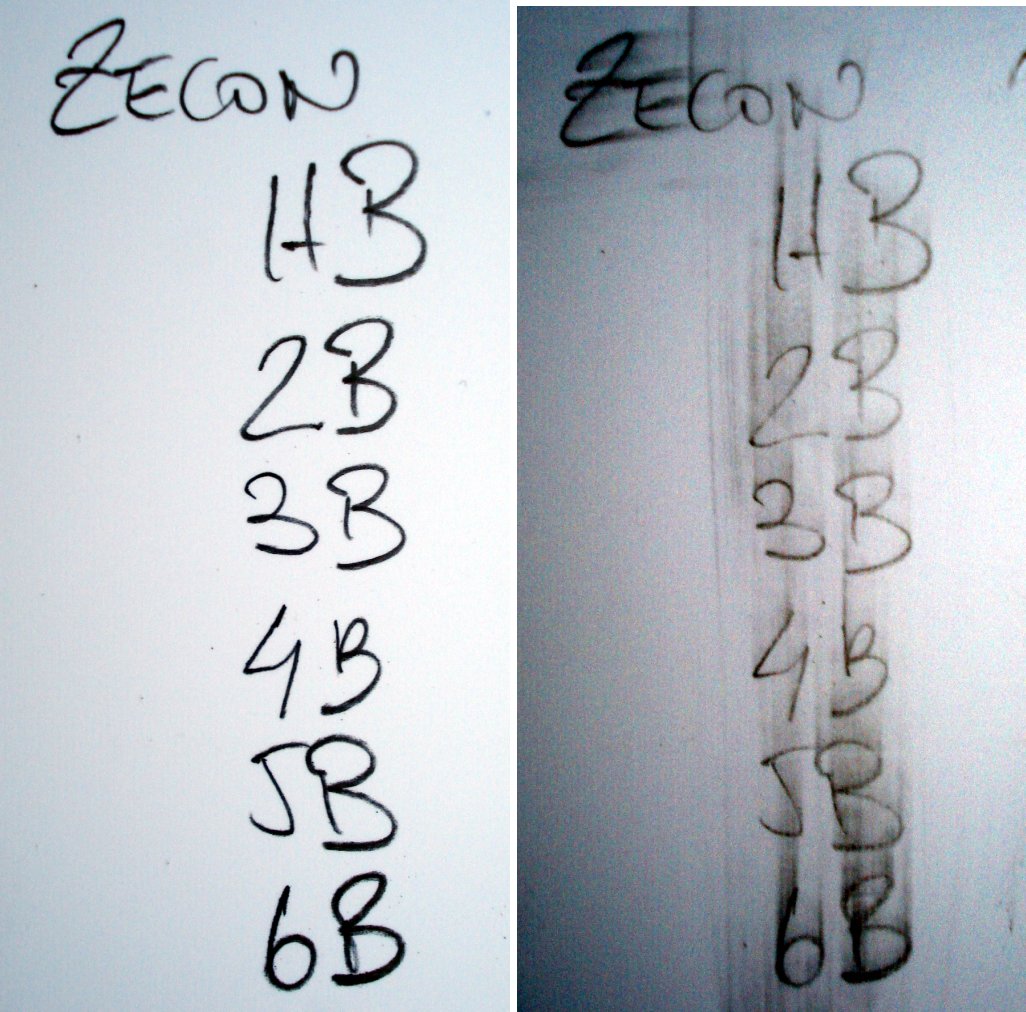 ZECON
HB
2B
3B
4B
5B
6B
ZECON
HB
2B
3B
4B
5B
6B